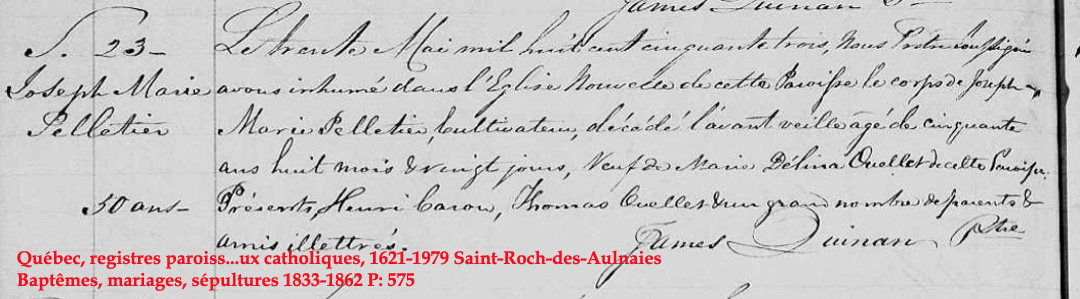 James Quinan Ptre
S. 23 - Le trente Mai mil huit cent cinquante trois, Nous Prêtre soussigné
Joseph Marie avons inhumé dans l'Eglise Nouvelle de cette Paroisse le corps de Joseph
Pelletier Marie Pelletier, Cultivateur, décédé l'avant veille agé de cinquante
ans huit mois & vingt jours, Veuf de Marie Délina Ouellet de cette Paroisse.
50 ans - Présents, Henri Caron, Thomas Ouellet & un grand nombre de parents &
amis illettrés. James Quinan Ptre
Québec, registres paroiss...ux catholiques, 1621-1979 Saint-Roch-des-Aulnaies
Baptêmes, mariages, sépultures 1833-1862 P: 575